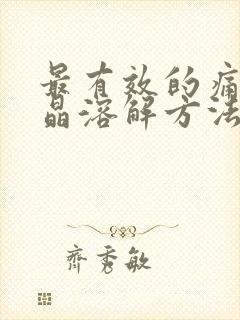 最有效的痛
晶溶解方法
齊秀敏